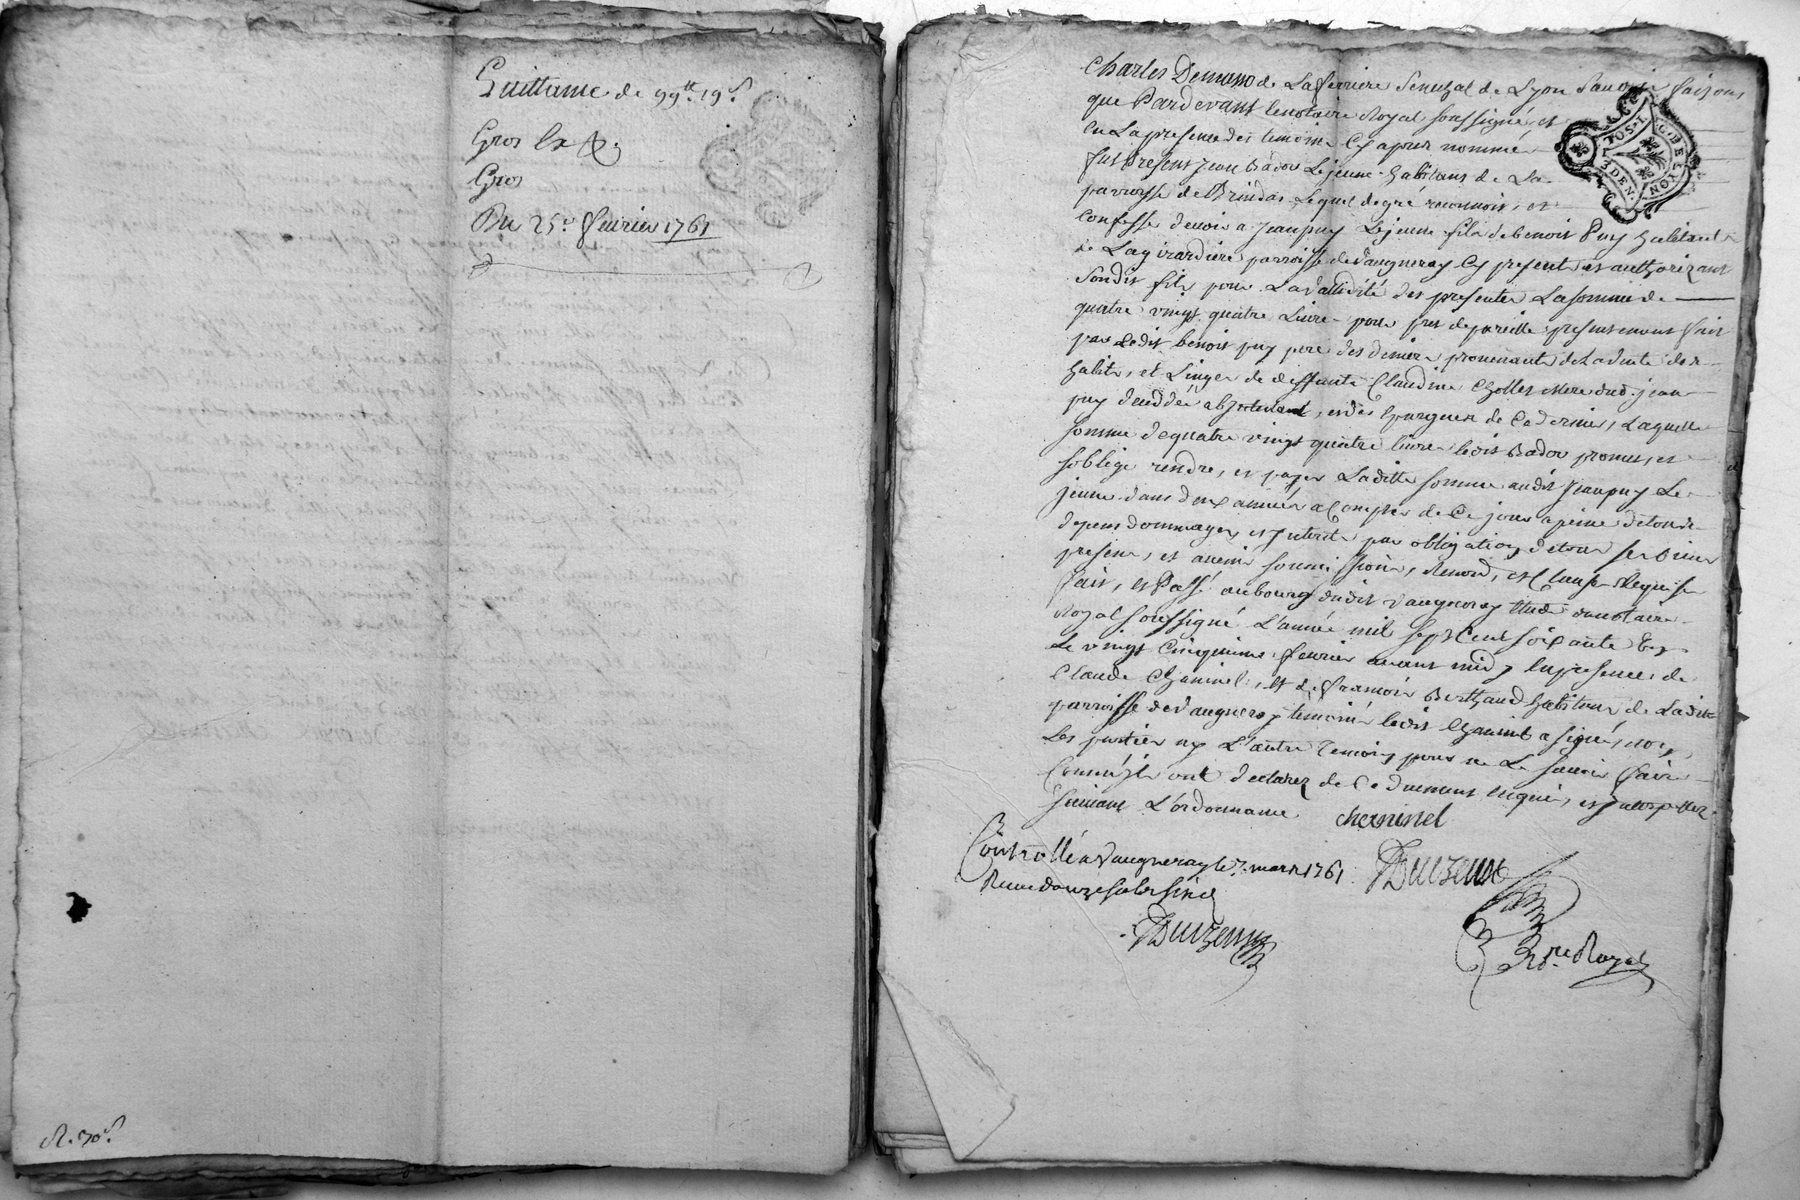 Quittance de 99tt 19s
Gros
Gros
Du 25e fevrier 1761
R. 30s.
Charles Demasso de Laferriere Senechal de Lyon Savoir faisons
que Pardevant le notaire Royal soussigné, et
En La presence des temoins Cy apres nommés
fut Present Jean Bador Le jeune habitant de La
parroisse de Brindas, Lequel de gré reconnoit, et
Confesse devoir a Jean puy Le jeune fils de benoit Puy habitant
de Lagirardiere parroisse de Vaugneray Cy present et authorizant
Sondit fils pour La validité des presentes La somme de
quatre vingt quatre Livres pour pret de pareille presentement fait
par Ledit benoit puy pere des deniers provenants de La vente des
habits, et Linges de deffunte Claudine Chollet Mere dud. jean
puy, et des Epargnes de Ce dernier, Laquelle
somme de quatre vingt quatre livres ledit Bador promet, et
s'oblige rendre, et payer Laditte somme audit Jean puy Le
jeune dans deux années a Compter de Ce jour a peine de tous
depens dommages, et Interets par obligation de tous ses biens
presens, et avenir soumissions, Renond, et Clauses Requises
fait, et Passé au bourg dudit Vaugneray Etude du notaire
Royal soussigné L'année mil sept Cent soixante Et
Le vingt Cinquieme fevrier avant midy En presence de
Claude Cheminel, et de francois Berthaud habitans de Ladite
parroisse de Vaugneray temoins ledit Cheminel a signé, non
Les parties ny L'autre Temoin pour ne Le savoir faire
Comme ils ont declarez de Ce duement Enquis, et Interpellez
suivant L'ordonnance cheminel
Controllé a Vaugneray le 7. mars 1761
Receu douze sols six d
Nre Royal
POS. I. G. DE LYON
3 DEN.